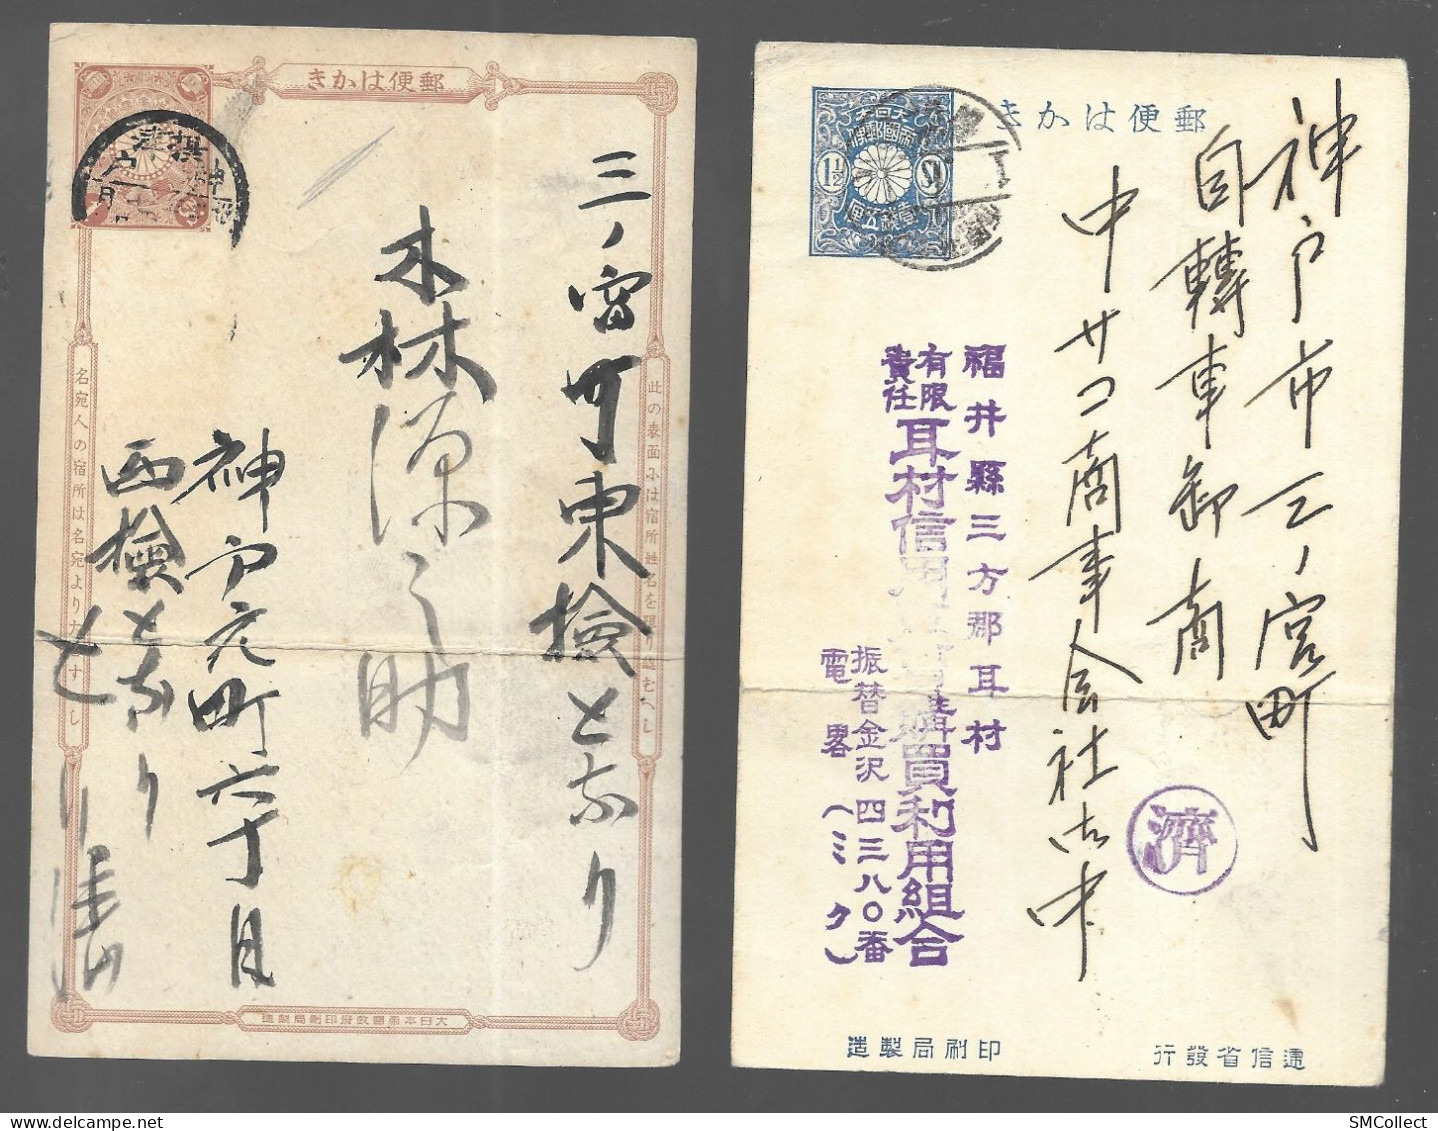 郵便はかき
三ノ宮町東検となり
木林源之助
神戸元町六丁目
西検となり
此の表面ふは宿所姓名を限り認むへし
大日本帝國政府印刷局製造
郵便はかき
大日本
帝國郵便
1½
壹錢五厘
神戸市三ノ宮町
自轉車卸商
中サコ商事会社御中
濟
福井縣三方郡耳村
有限
責任
耳村信用
購買利用組合
振替金沢四三八〇番
電畧(ミク)
印刷局製造
逓信省發行
SMCollect